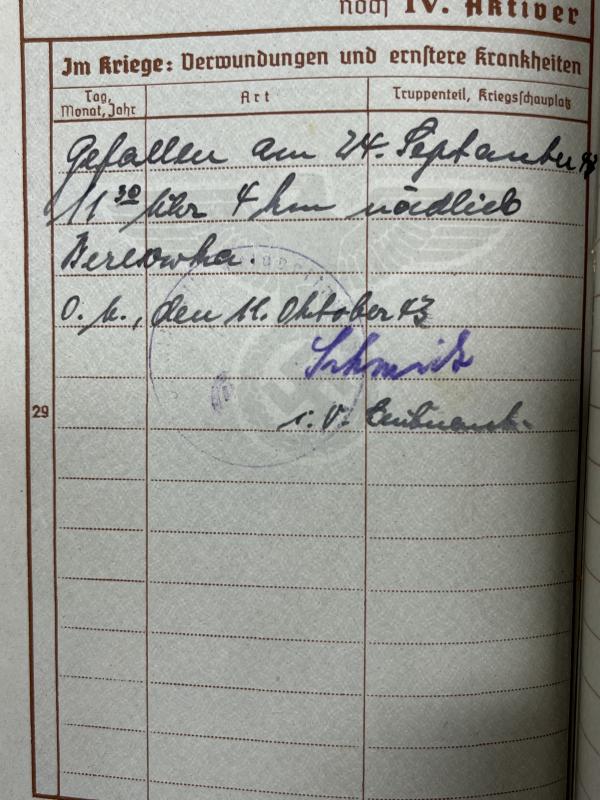 noch IV. Aktiver
Im Kriege: Verwundungen und ernstere Krankheiten
Tag, Monat, Jahr
Art
Truppenteil, Kriegsschauplatz
Gefallen am 24. September 43
11 30 Uhr 4 km nördlich
Beresowka.
O. U., den 11. Oktober 43
Schmitz
29